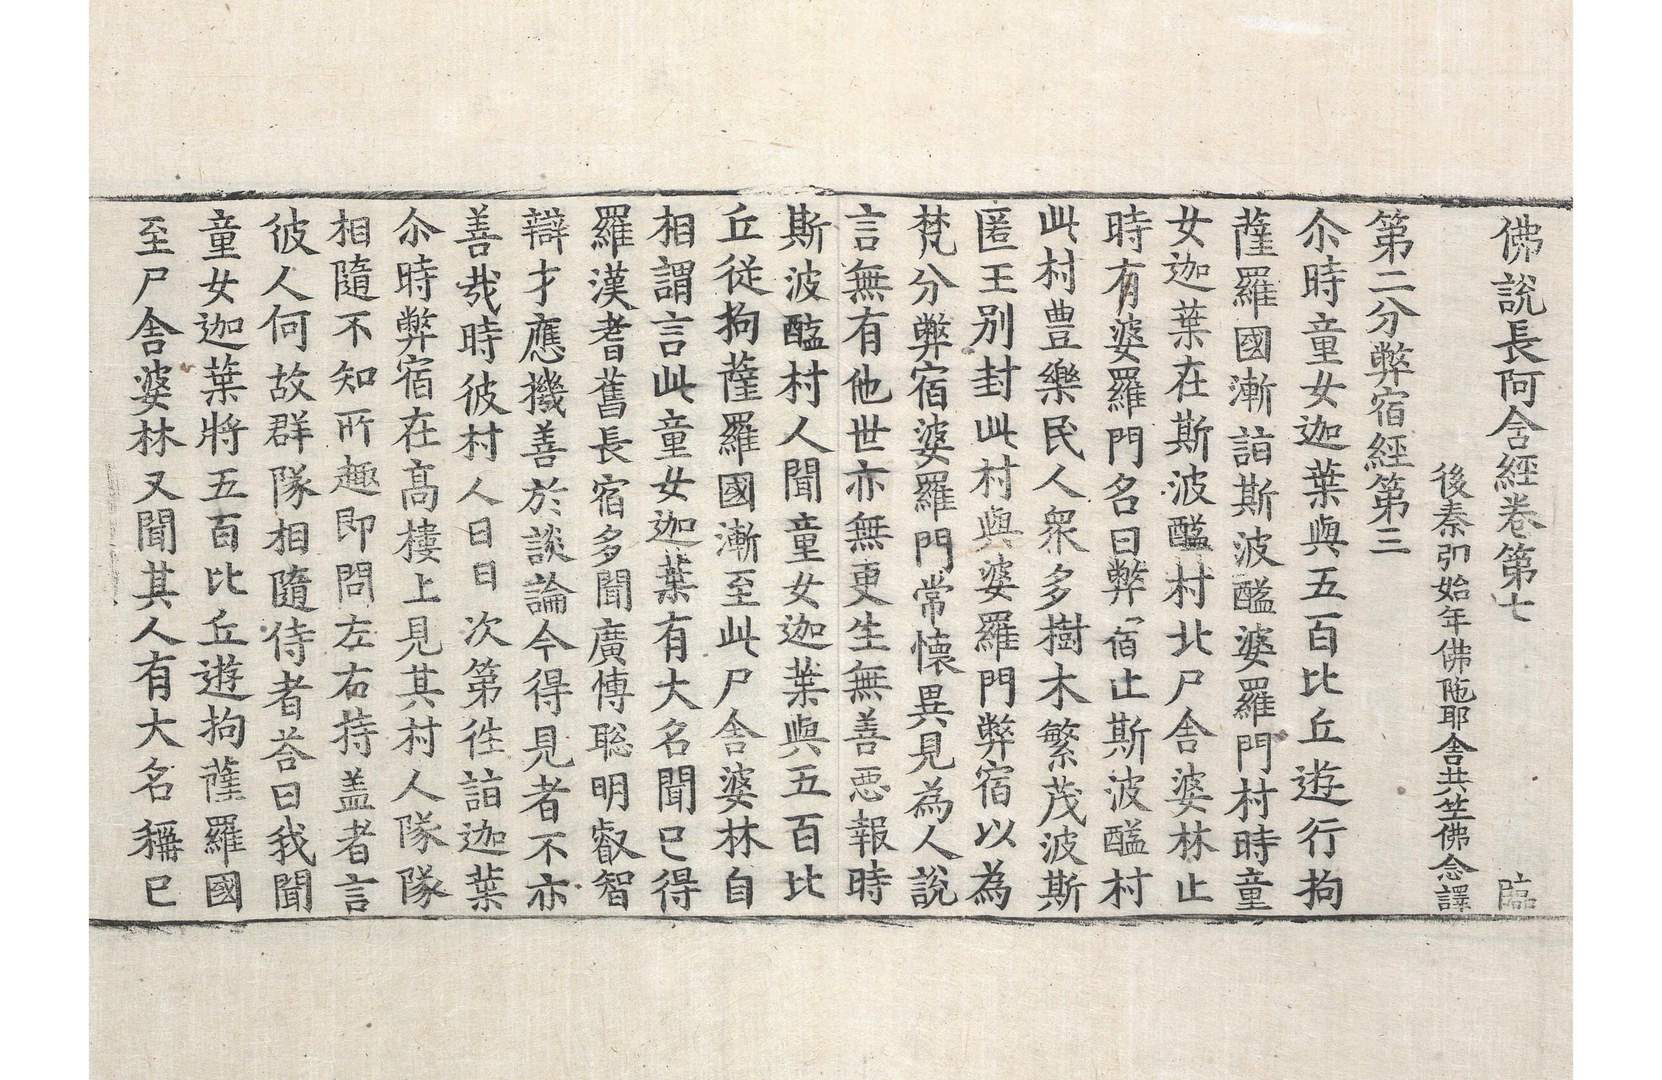 佛說長阿含經卷第七　臨
後秦弘始年佛陁耶舍共竺佛念譯
第二分弊宿經第三
尒時童女迦葉與五百比丘遊行拘
薩羅國漸詣斯波醯婆羅門村時童
女迦葉在斯波醯村北尸舍婆林止
時有婆羅門名曰弊宿止斯波醯村
此村豊樂民人衆多樹木繁茂波斯
匿王別封此村與婆羅門弊宿以為
梵分弊宿婆羅門常懷異見為人說
言無有他世亦無更生無善惡報時
斯波醯村人聞童女迦葉與五百比
丘從拘薩羅國漸至此尸舍婆林自
相謂言此童女迦葉有大名聞已得
羅漢耆舊長宿多聞廣博聡明叡智
辯才應機善於談論今得見者不亦
善哉時彼村人日日次第徃詣迦葉
尒時弊宿在髙樓上見其村人隊隊
相隨不知所趣即問左右持盖者言
彼人何故群隊相隨侍者荅曰我聞
童女迦葉將五百比丘遊拘薩羅國
至尸舍婆林又聞其人有大名稱已